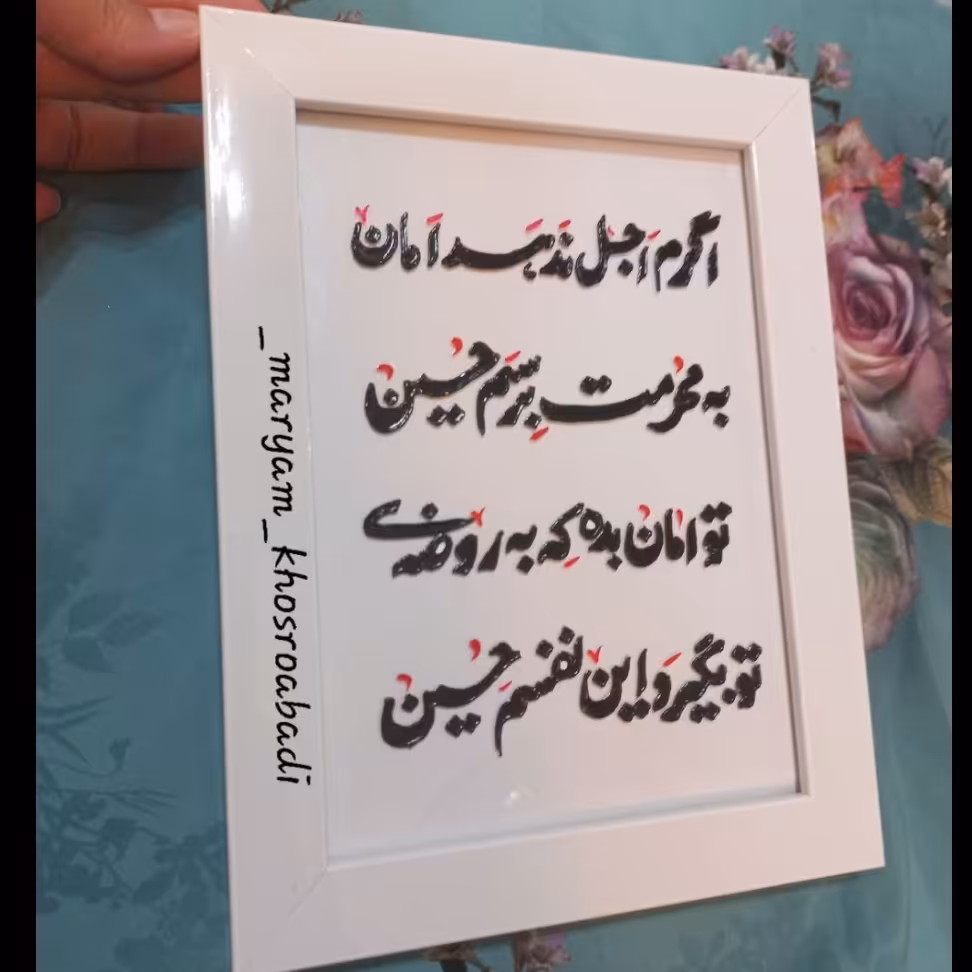 اگرم اَجل نَدَهَد اَمان
به محرمت بِرِسَم حسین
تو امان بده که به روضه‌ی
تو بگیرَد این نفسم حسین
_maryam_khosroabadi